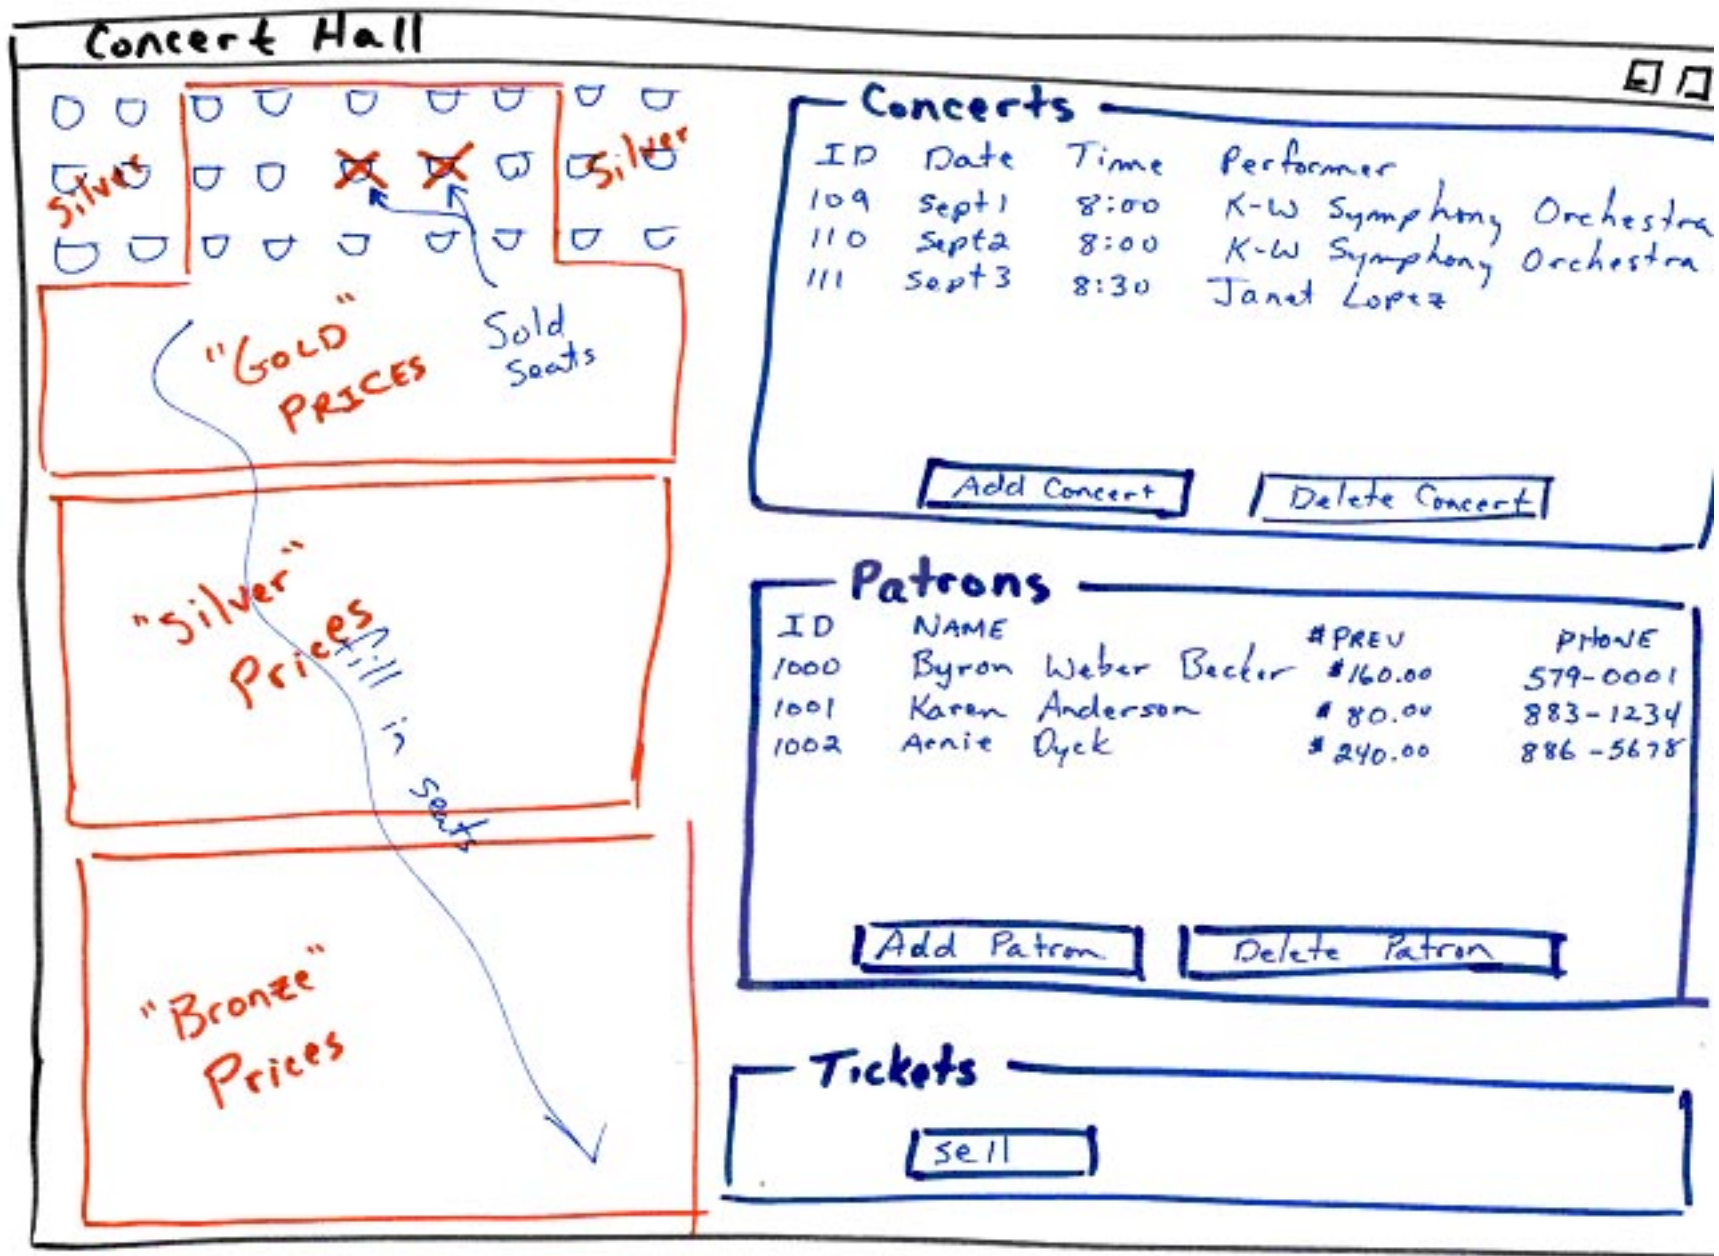 Concert Hall
Silver
Silver
Sold
Seats
"GOLD"
PRICES
"Silver"
Prices
fill in seats
"Bronze"
Prices
Concerts
ID Date Time Performer
109 Sept1 8:00 K-W Symphony Orchestra
110 Sept2 8:00 K-W Symphony Orchestra
111 Sept3 8:30 Janet Lopez
Add Concert Delete Concert
Patrons
ID NAME #PREV PHONE
1000 Byron Weber Becker $160.00 579-0001
1001 Karen Anderson $80.00 883-1234
1002 Arnie Dyck $240.00 886-5678
Add Patron Delete Patron
Tickets
sell